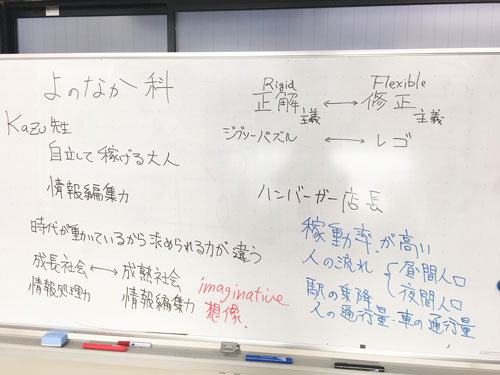 よのなか科
Kazu先生
自立して稼げる大人
情報編集力
時代が動いているから求められる力が違う
成長社会 ↔ 成熟社会
情報処理力 情報編集力
imaginative
想像
Rigid Flexible
正解主義 ↔ 修正主義
ジグソーパズル ↔ レゴ
ハンバーガー店長
稼動率が高い
人の流れ { 昼間人口
夜間人口
駅の乗降
人の通行量・車の通行量